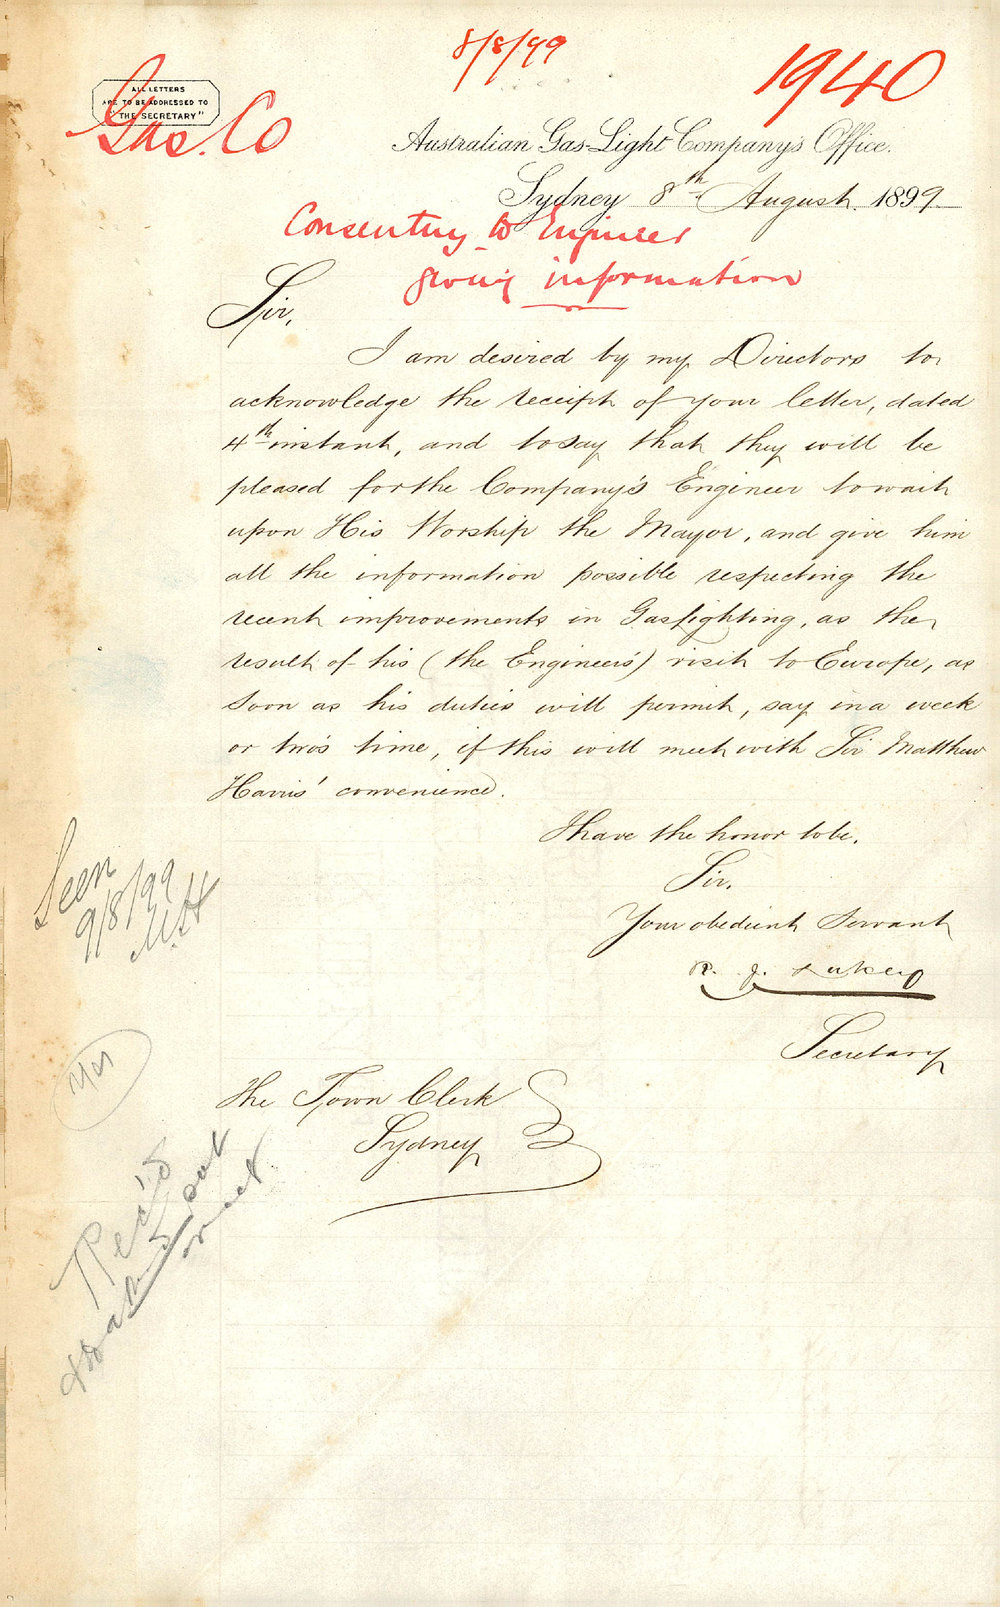 8/8/99
1940
ALL LETTERS
ARE TO BE ADDRESSED TO
"THE SECRETARY"
Gas. Co
Australian Gas-Light Company's Office.
Sydney 8th August 1899
Consenting to Engineer
giving information
Sir,
I am desired by my Directors to
acknowledge the receipt of your letter, dated
4th instant, and to say that they will be
pleased for the Company's Engineer to wait
upon His Worship the Mayor, and give him
all the information possible respecting the
recent improvements in Gaslighting, as the
result of his (the Engineer's) visit to Europe, as
soon as his duties will permit, say in a week
or two's time, if this will meet with Sir Matthew
Harris' convenience.
I have the honor to be,
Sir,
Your obedient Servant
R. J. Lukey
Secretary
Seen
9/8/99
M.H
The Town Clerk
Sydney
Rec'd